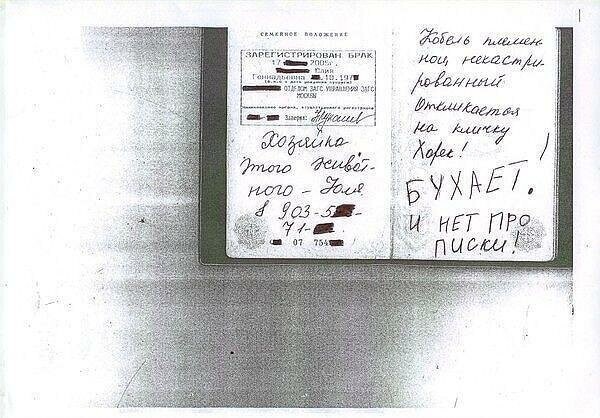 СЕМЕЙНОЕ ПОЛОЖЕНИЕ
ЗАРЕГИСТРИРОВАН БРАК
17 2005г.
Юлия
Геннадьевна 10.197
ОТДЕЛОМ ЗАГС УПРАВЛЕНИЯ ЗАГС
МОСКВЫ
Заверил:
Хозяйка
этого живот-
ного - Юля
8 903-5
71-
07 754
Кобель племен
ной некастри-
рованный
Откликается
на кличку
Хорек!
БУХАЕТ.
И НЕТ ПРО
ПИСКИ!